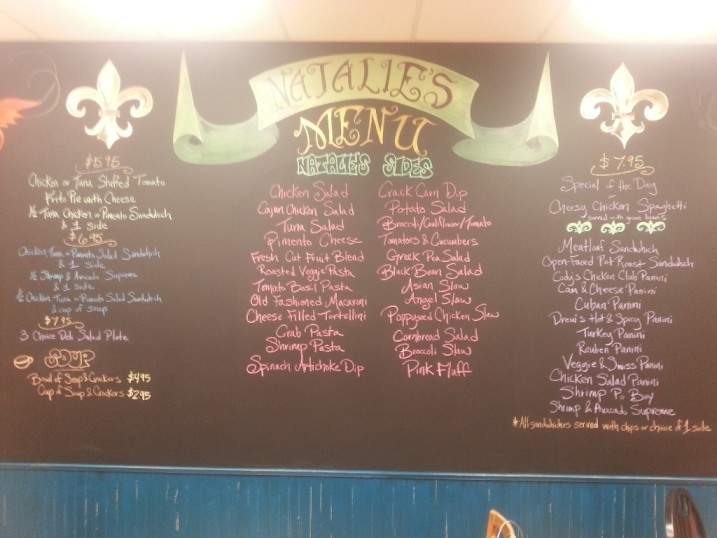 NATALIE'S
MENU
NATALIE'S SIDES
$5.95
Chicken or Tuna Stuffed Tomato
Pie with Cheese
½ Tuna, Chicken or Pimento Sandwich
& 1 side
$6.95
Chicken, Tuna or Pimento Salad Sandwich
& 1 side
½ Shrimp & Avocado Supreme
& 1 side
½ Chicken, Tuna or Pimento Salad Sandwich
& cup of soup
$7.95
3 Choice Deli Salad Plate
SOUP
Bowl of Soup & Crackers $4.95
Cup of Soup & Crackers $2.95
Chicken Salad
Cajun Chicken Salad
Tuna Salad
Pimento Cheese
Fresh Cut Fruit Blend
Roasted Veggie Pasta
Tomato Basil Pasta
Old Fashioned Macaroni
Cheese Filled Tortellini
Crab Pasta
Shrimp Pasta
Spinach Artichoke Dip
Crack Corn Dip
Potato Salad
Broccoli/Cauliflower/Tomato
Tomatoes & Cucumbers
Greek Pea Salad
Black Bean Salad
Asian Slaw
Angel Slaw
Poppyseed Chicken Slaw
Cornbread Salad
Broccoli Slaw
Pink Fluff
$7.95
Special of the Day
Cheesy Chicken Spaghetti
served with green beans
Meatloaf Sandwich
Open-Faced Pot Roast Sandwich
Cody's Chicken Club Panini
Ham & Cheese Panini
Cuban Panini
Drew's Hot & Spicy Panini
Turkey Panini
Reuben Panini
Veggie & Swiss Panini
Chicken Salad Panini
Shrimp Po Boy
Shrimp & Avocado Supreme
*All sandwiches served with chips or choice of 1 side